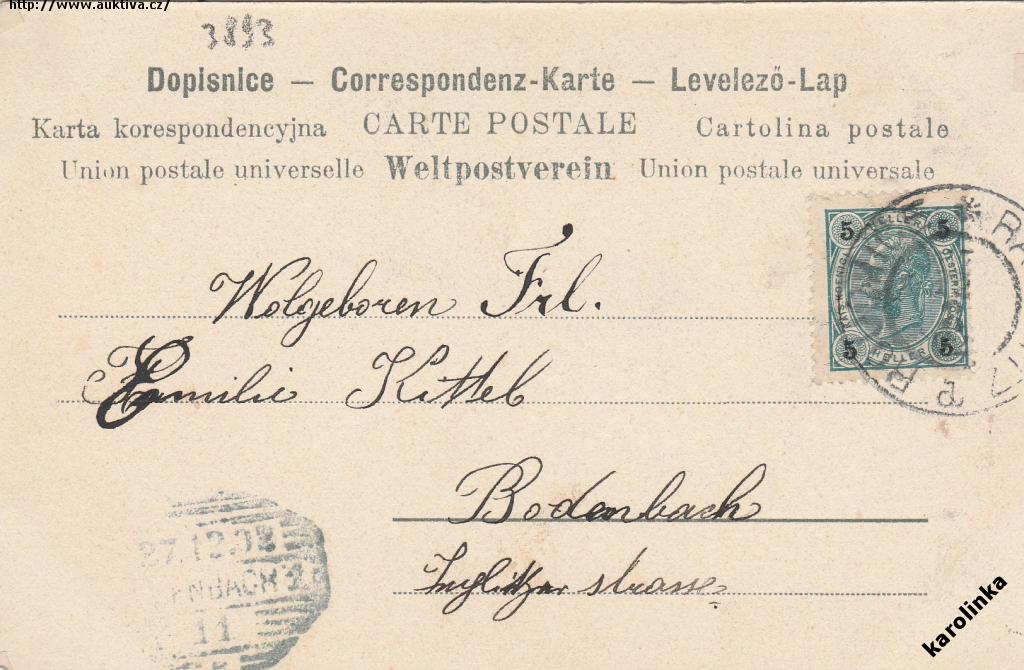 http://www.auktiva.cz/
3893
Dopisnice — Correspondenz-Karte — Levelező-Lap
Karta korespondencyjna CARTE POSTALE Cartolina postale
Union postale universelle Weltpostverein Union postale universale
5 HELLER 5
5 HELLER 5
Wolgeboren Frl.
Emilie Kittel
Bodenbach
strasse
27.12.02
ENBACH 1
11
karolinka